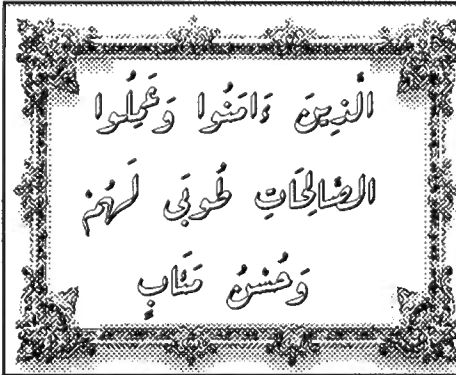 الَّذِينَ ءَامَنُوا وَعَمِلُوا
الصَّالِحَاتِ طُوبَى لَهُمْ
وَحُسْنُ مَئَابٍ